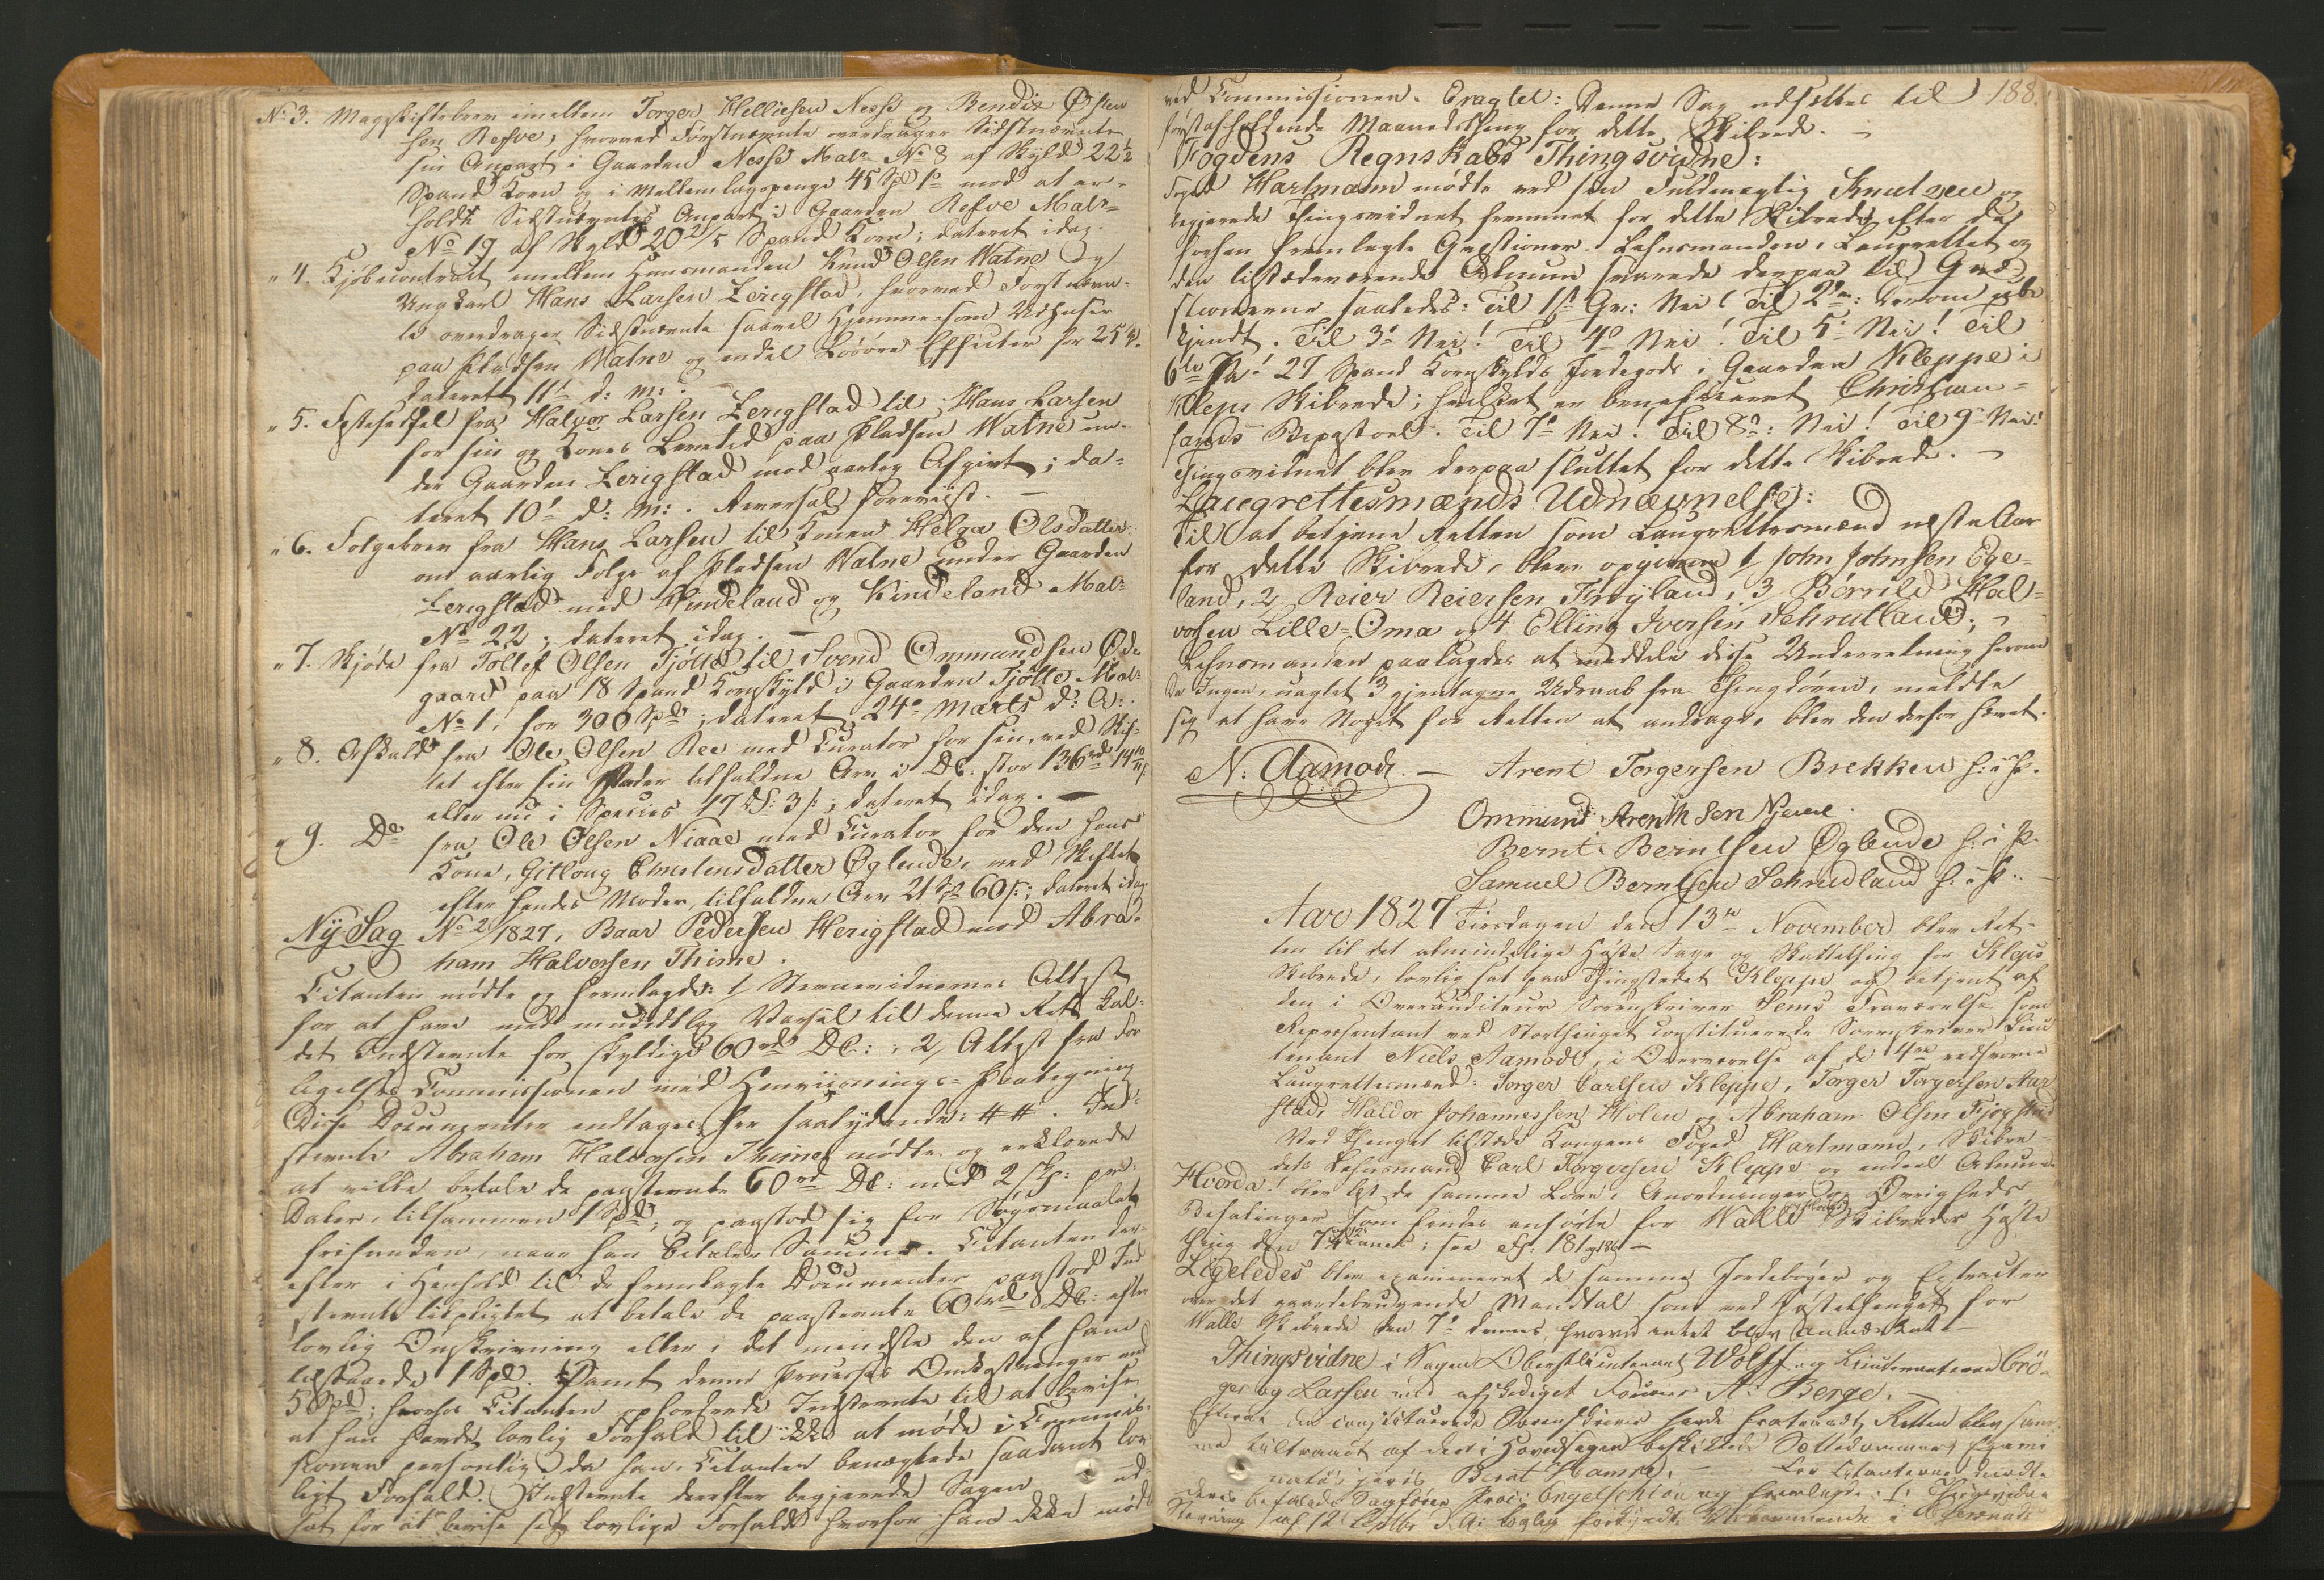 No 3. Mageskiftebrev imellem Torger Helliesen Næsse og Bendix Østen
sen Refve, hvorved Førstnævnte overdrager Sidstnævnte
sin Anpart i Gaarden Nesse Matr. No 8 af Skyld 22½
Spand Korn og i Mellemlagspenge 45 Spd mod at er-
holde Sidstnævntes Anpart i Gaarden Refve Matr=
No 19 af Skyld 20 2/5 Spand Korn; dateret idag.
" 4. Kjøbecontract imellem Huusmanden Knud Olsen Watne og
Ungkarl Hans Larsen Lerigstad, hvorved Førstnævn-
te overdrager Sidstnævnte saavel Hjemmer som Udhuser
paa Pladsen Watne og endel Løsøre Effecter for 25
dateret 11te d: M: .
" 5. Festeseddel fra Halvor Larsen Lerigstad til Hans Larsen
for sin og Kones Levetid paa Pladsen Watne un-
der Gaarden Lerigstad mod aarlig Afgivt; da=
teret 10de d: M: . Reversal forevist. —
" 6. Folgebrev fra Hans Larsen til Konen Helga Olsdatter
om aarlig Folge af Pladsen Watne under Gaarden
Lerigstad med Hindeland og Kindeland Matr=
No 22; dateret idag. —
" 7. Skjøde fra Tollef Olsen Tjøtte til Svend Ommundsen Øde
gaard paa 18 Spand Kornskyld i Gaarden Tjøtte Matr
No 1, for 300 Spd; dateret 24de Marts d: A: .
" 8. Afkald fra Ole Olsen Ree med Curator for sin, ved Skif-
tet efter sin Fader tilfaldne Arv i DC. stor 136 rd 14
eller nu i Species 17 3 s; dateret idag. —
" 9. Do fra Ole Olsen Niaae med Curator for den hans
Kone, Gitlaug Christensdatter Øglende, ved Skiftet
efter hendes Moder, tilfaldne Arv 21 Spd 60 s; dateret idag
Ny Sag No 2/1827, Baar Pedersen Herigstad mod Abra-
ham Halvorsen Thime.
Citanten mødte og fremlagde: 1, Stevnevidnernes Attest
for at have med mundtlig Varsel til denne Ret kal-
det Indstevnte for skyldige 60 rd DC: ; 2, Attest fra For
ligelses Commissionen med Henviisnings=Paategning
Disse Documenter indtages her saalydende: ##. Ind-
stevnte Abraham Halvorsen Thime mødte og erklærede
at ville betale de paastevnte 60 rd DC: med 2 s pr:
Daler, tilsammen 1 Spd, og paastod sig for Søgsmaalet
frifunden, naar han betaler Summen. Citanten der-
efter i Henhold til de fremlagte Documenter paastod Ind
stevnte tilpligtet at betale de paastevnte 60 rd DC: efter
lovlig Omskrivning eller i det mindste den af ham
tilstaaede 1 Spd. Samt denne Processes Omkostninger med
5 Spd; hvorhos Citanten opfordrede Indstevnte til at bevise
at han havde lovlig Forfald til ikke at møde i Commis-
sionen personlig, da han, Citanten benægtede saadant lov-
ligt Forfald. Indstevnte derefter begjerede Sagen ud-
sat for at bevise sit lovlige Forfald hvorfor han ikke mødte
188.
ved Commissionen. Eragtet: Denne Sag udsættes til
førstafholdende Maanedsthing for dette Skibrede. —
Fogdens Regnskabs Thingsvidne:
Foged Hartmann mødte ved sin Fuldmægtig Knutzen og
begjerede Thingsvidnet fremmet for dette Skibrede efter de
forhen fremlagte Qvæstioner. Lehnsmanden, Laugrettet og
den tilstedeværende Almue svarede derpaa til Qvæ-
stionerne saaledes: Til 1ste Qv: Nei! Til 2den: derom ube
kjendt. Til 3de Nei! Til 4de Nei! Til 5te Nei! Til
6te Ja! 27 Spand Kornskylds Jordegods i Gaarden Kleppe i
Kleps Skibrede; hvilket er beneficeret Christian=
sands Bispestoel. Til 7de Nei! Til 8de: Nei! Til 9de Nei!
Thingsvidnet blev derpaa sluttet for dette Skibrede. —
Laugrettesmænds Udnævnelse:
Til at betjene Retten som Laugrettesmænd neste Aar
for dette Skibrede, blev opgiven 1, John Johnsen Ege=
land, 2, Reier Reiersen Frøyland, 3, Børrild Hal=
vorsen Lille=Oma og 4 Elling Iversen Schrutland; —
Lehnsmanden paalagdes at meddele disse Underretning herom
Da Ingen, uagtet 3 gjentagne Udraab fra Thingdøren, meldte
sig at have Noget for Retten at andrage, blev den derfor hævet.
N: Aamodt. — Arent Torgersen Brekken h: i P.
Ommund Arenth sen Njerve
Bernt Berntsen Øglende h: i P.
Samuel Berntsen Schrudland h: i P. . —
Aar 1827 Tirsdagen den 13de November blev Ret-
ten til det almindelige Høste Sage og Skattething for Kleps
Skibrede, lovlig sat paa Thingstedet Kleppe og betjent af
den i Overauditeur Sorenskriver Sems Fraværelse som
Repræsentant ved Storthinget constituerede Sorenskriver Lieu
tenant Niels Aamodt, i Overværelse af de 4re edsvorne
Laugrettesmænd: Torger Carlsen Kleppe, Torger Torgersen Aar
stad, Haldor Johannessen Holen og Abraham Olsen Fjogstad
Ved Thinget tilstede Kongens Foged Hartmann, Skibre-
dets Lehnsmand Carl Torgersen Kleppe og endeel Almue
Hvorda! blev læst de samme Love, Anordninger og Øvrigheds
Befalinger som findes anførte for Walle Skibredes Høste
thing den 7de dennes; see Fol: 181 og 186 —
Ligeledes blev examineret de samme Jordebøger og Extracter
over det gaardebrugende Mandtal som ved Høstethinget for
Walle Skibrede den 7de dennes, hvorved intet blev anmærket. —
Thingsvidne i Sagen Oberstlieutenant Wolff og Lieutenanterne Crö-
ger og Larsen mod afskediget Fourer A: Berge. —
Efterat den constituerede Sorenskriver havde fratraadt Retten blev samme
tiltraadt af den i Hovedsagen beskikkede Sættedommer Exami
natus juris Bernt Hamre. — For Citanterne mødte
deres befalede Sagfører Proc: Engelschiøn og fremlagde: 1, Thingsvidne
Stevning af 12 Septbr d. A: lovlig forkyndt